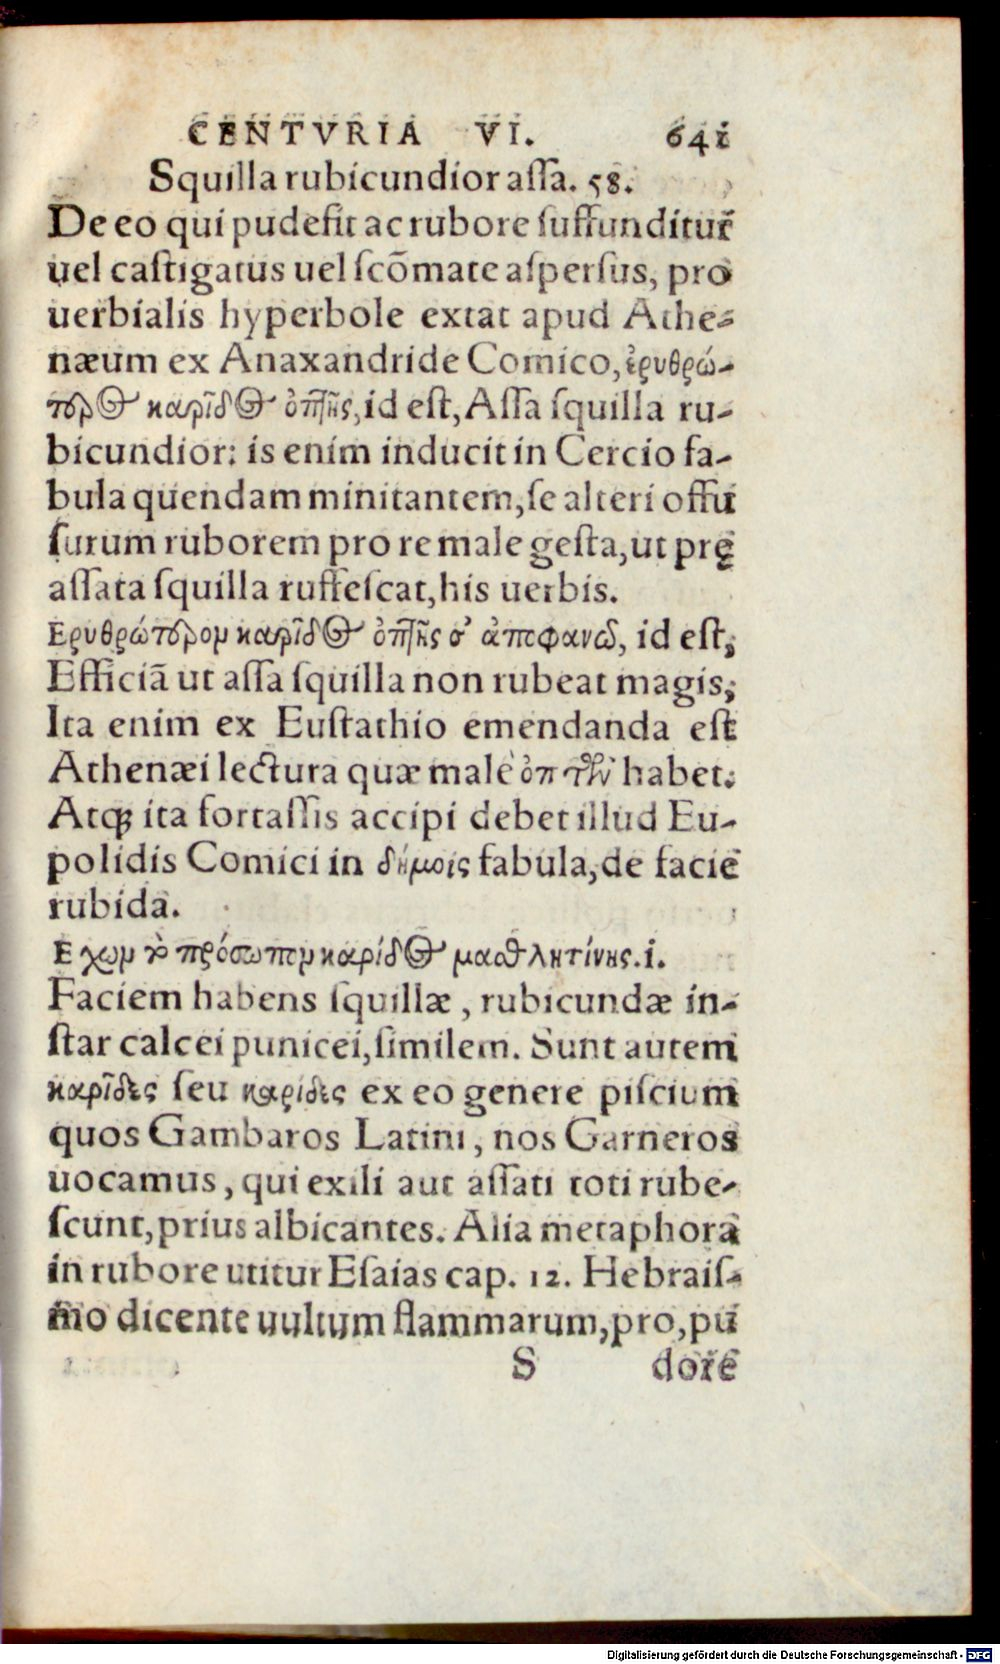 CENTVRIA VI. 641
Squilla rubicundior assa. 58.
De eo qui pudefit ac rubore suffunditur
uel castigatus uel scōmate aspersus, pro
uerbialis hyperbole extat apud Athe-
næum ex Anaxandride Comico, ἐρυθρώ-
τερος καρῖδος ὀπτῆς, id est, Assa squilla ru-
bicundior: is enim inducit in Cercio fa-
bula quendam minitantem, se alteri offu
surum ruborem pro re male gesta, ut prę
assata squilla ruffescat, his uerbis.
Ερυθρώτερον καρῖδος ὀπτῆς σ' ἀποφανῶ, id est,
Efficiā ut assa squilla non rubeat magis;
Ita enim ex Eustathio emendanda est
Athenæi lectura quæ male ὀπτὴν habet.
Atq; ita fortassis accipi debet illud Eu-
polidis Comici in δήμοις fabula, de facie
rubida.
Εχων τὸ πρόσωπον καρίδος μασθλητίνης .i.
Faciem habens squillæ, rubicundæ in-
star calcei punicei, similem. Sunt autem
καρῖδες seu καρίδες ex eo genere piscium
quos Gambaros Latini, nos Garneros
uocamus, qui exili aut assati toti rube-
scunt, prius albicantes. Alia metaphora
in rubore utitur Esaias cap. 12. Hebrais-
mo dicente uultum flammarum, pro, pu
S dore
Digitalisierung gefördert durch die Deutsche Forschungsgemeinschaft - DFG